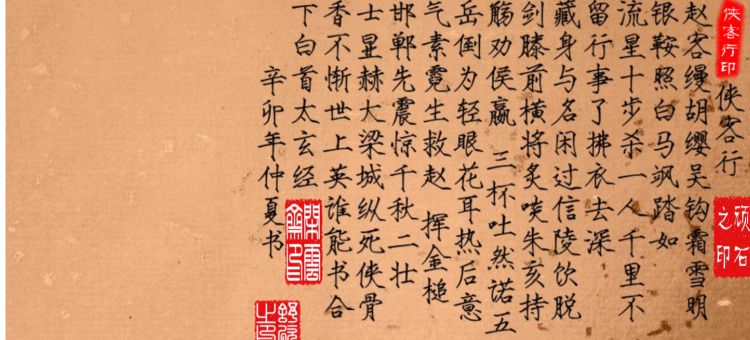 侠客行印
侠客行
石之印
赵客缦胡缨吴钩霜雪明
银鞍照白马飒踏如
流星十步杀一人千里不
留行事了拂衣去深
藏身与名闲过信陵饮脱
剑膝前横将炙啖朱亥持
觞劝侯嬴 三杯吐然诺五
岳倒为轻眼花耳热后意
气素霓生救赵 挥金槌
邯郸先震惊千秋二壮
士显赫大梁城纵死侠骨
香不惭世上英谁能书合
下白首太玄经
辛卯年仲夏书